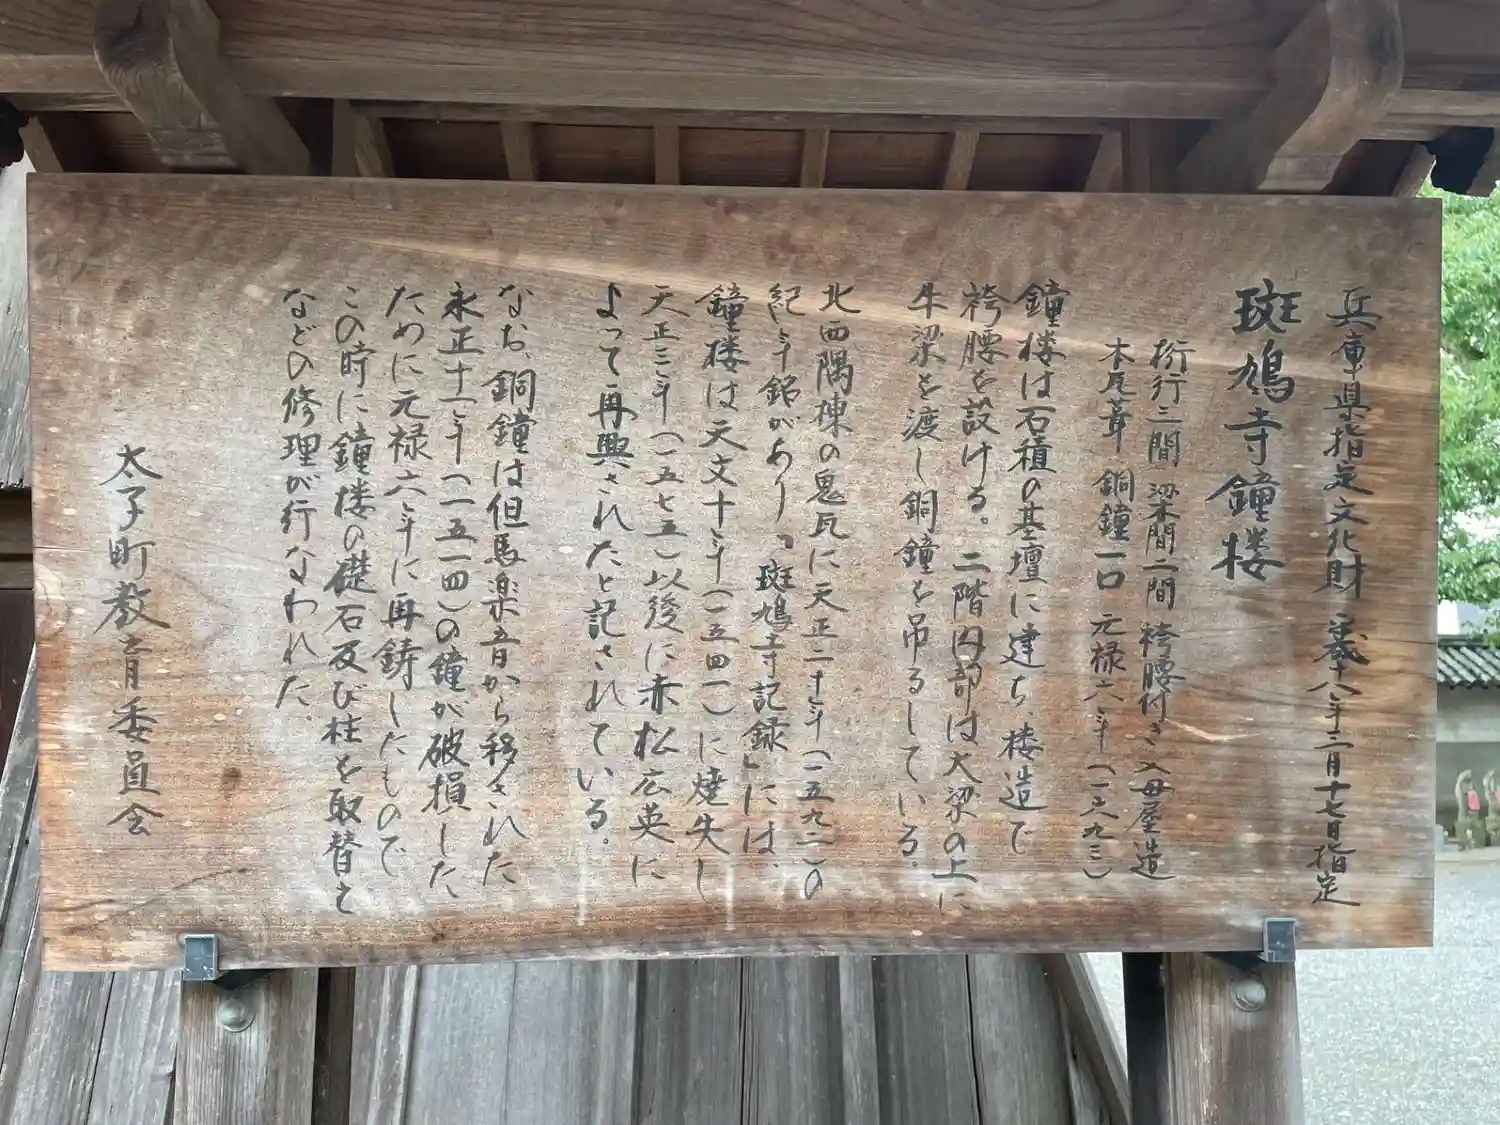 兵庫県指定文化財 平成十八年三月十七日指定
斑鳩寺鐘楼
桁行三間 梁間二間 袴腰付き 入母屋造
本瓦葺 銅鐘一口 元禄六年(一六九三)
鐘楼は石積の基壇に建ち楼造で
袴腰を設ける。二階内部は大梁の上に
牛梁を渡し銅鐘を吊るしている。
北西隅棟の鬼瓦に天正二十年(一五九二)の
紀年銘があり「斑鳩寺記録」には、
鐘楼は天文十年(一五四一)に焼失し
天正三年(一五七五)以後に赤松広英に
よって再興されたと記されている。
なお、銅鐘は但馬楽音から移された
永正十一年(一五一四)の鐘が破損した
ために元禄六年に再鋳したもので
この時に鐘楼の礎石及び柱を取替え
などの修理が行なわれた。
太子町教育委員会